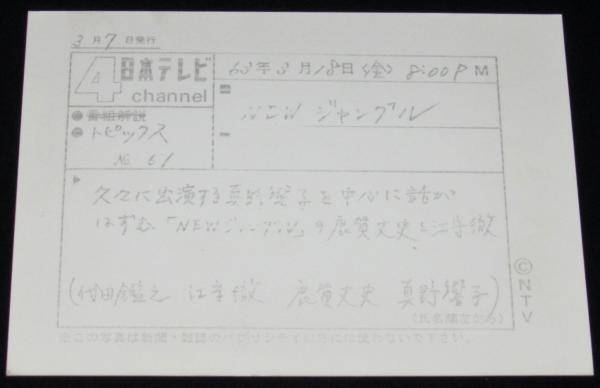 3月7日発行
4 日本テレビ
channel
63年3月18日(金) 8:00PM
●番組解説
●トピックス
NEW ジャングル
No 61
久々に出演する真野響子を中心に話が
はずむ「NEWジャングル」の鹿賀丈史と江守徹
(代田鑑之 江守徹 鹿賀丈史 真野響子)
(氏名順左から)
©NTV
※この写真は新聞・雑誌のパブリシティ以外には使わないで下さい。